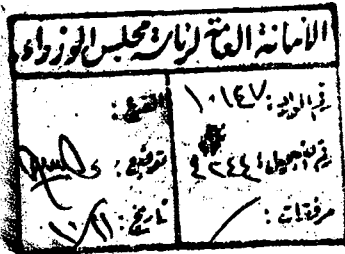 الأمانة العامة لرئاسة مجلس الوزراء
رقم الوارد: ١٠١٤٧
رقم التسجيل: ٤٢٤٤
مرفقات: /
الفرع:
توقيع:
تاريخ: ١٠/٢١